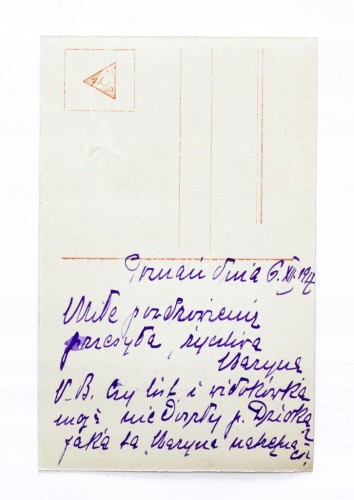 Poznań dnia 6. XII. 192
Miłe pozdrowienia
przesyła, życzliwa
Maryna
N.B. Czy list i widokówka
moja nie doszły p.
jaka ta Maryna